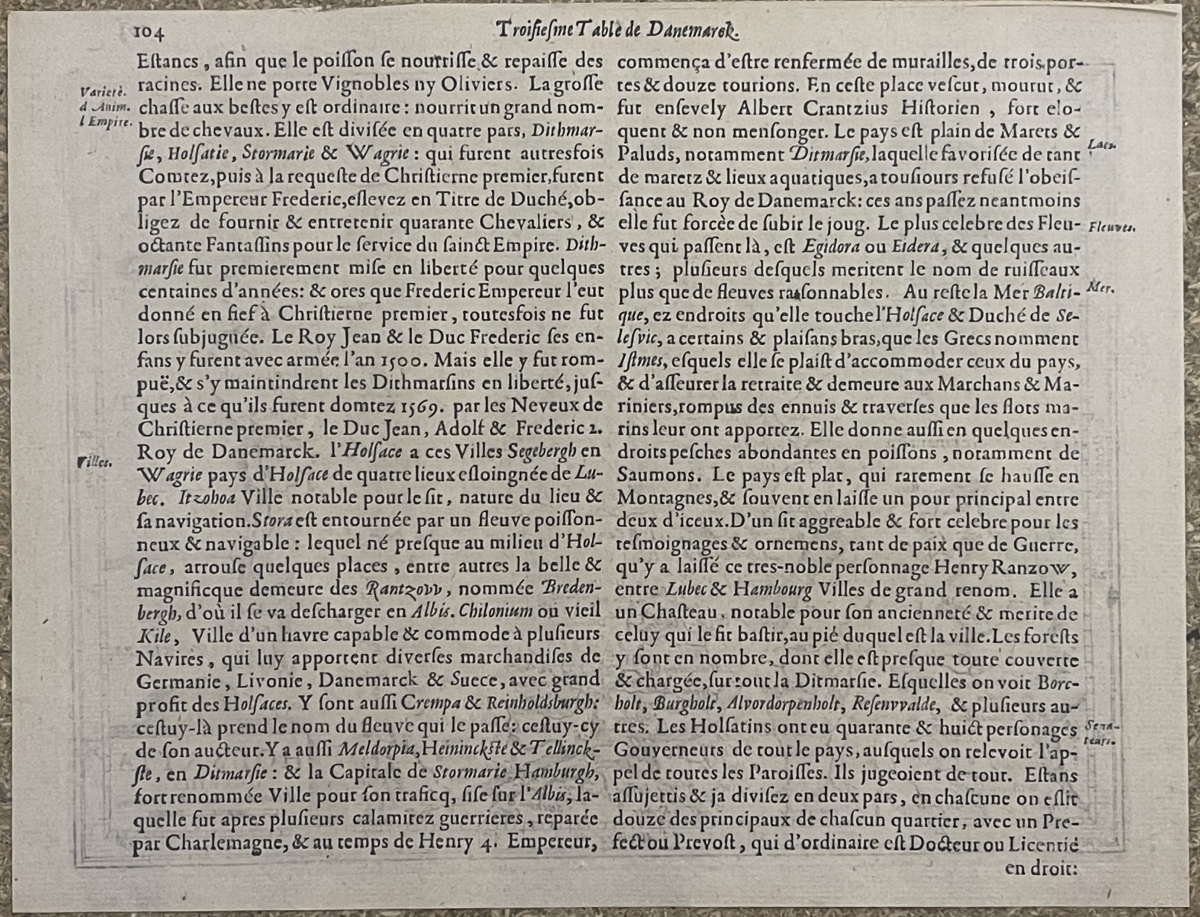 104
Troiſieſme Table de Danemarck.
Eſtancs, afin que le poiſſon ſe nourriſſe & repaiſſe des
racines. Elle ne porte Vignobles ny Oliviers. La groſſe
Varietè.
d'Anim.
l'Empire.
chaſſe aux beſtes y eſt ordinaire: nourrit un grand nom-
bre de chevaux. Elle eſt diviſée en quatre pars, Dithmar-
ſie, Holſatie, Stormarie & Wagrie: qui furent autresfois
Comtez, puis à la requeſte de Chriſtierne premier, furent
par l'Empereur Frederic, eſlevez en Titre de Duché, ob-
ligez de fournir & entretenir quarante Chevaliers, &
octante Fantaſſins pour le ſervice du ſainct Empire. Dith-
marſie fut premierement miſe en liberté pour quelques
centaines d'années: & ores que Frederic Empereur l'eut
donné en fief à Chriſtierne premier, toutesfois ne fut
lors ſubjuguée. Le Roy Jean & le Duc Frederic ſes en-
fans y furent avec armée l'an 1500. Mais elle y fut rom-
puë, & s'y maintindrent les Dithmarſins en liberté, juſ-
ques à ce qu'ils furent domtez 1569. par les Neveux de
Chriſtierne premier, le Duc Jean, Adolf & Frederic 2.
Roy de Danemarck. l'Holſace a ces Villes Segebergh en
Villes.
Wagrie pays d'Holſace de quatre lieux eſloingnée de Lu-
bec. Itzohoa Ville notable pour le ſit, nature du lieu &
ſa navigation. Stora eſt entournée par un fleuve poiſſon-
neux & navigable: lequel né preſque au milieu d'Hol-
ſace, arrouſe quelques places, entre autres la belle &
magnifique demeure des Rantzovv, nommée Breden-
bergh, d'où il ſe va deſcharger en Albis. Chilonium ou vieil
Kile, Ville d'un havre capable & commode à pluſieurs
Navires, qui luy apportent diverſes marchandiſes de
Germanie, Livonie, Danemarck & Suece, avec grand
profit des Holſaces. Y ſont auſſi Crempa & Reinholdsburgh:
ceſtuy-là prend le nom du fleuve qui le paſſe: ceſtuy-cy
de ſon aucteur. Y a auſſi Meldorpia, Heininckſte & Tellinck-
ſte, en Ditmarſie: & la Capitale de Stormarie Hamburgh,
fort renommée Ville pour ſon traficq, ſiſe ſur l'Albis, la-
quelle fut apres pluſieurs calamitez guerrieres, reparée
par Charlemagne, & au temps de Henry 4. Empereur,
commença d'eſtre renfermée de murailles, de trois por-
tes & douze tourions. En ceſte place veſcut, mourut, &
fut enſevely Albert Crantzius Hiſtorien, fort elo-
quent & non menſonger. Le pays eſt plain de Marets &
Paluds, notamment Ditmarſie, laquelle favoriſée de tant
Lacs.
de maretz & lieux aquatiques, a touſiours refuſé l'obeiſ-
ſance au Roy de Danemarck: ces ans paſſez neantmoins
elle fut forcée de ſubir le joug. Le plus celebre des Fleu-
Fleuves.
ves qui paſſent là, eſt Egidora ou Eidera, & quelques au-
tres; pluſieurs deſquels meritent le nom de ruiſſeaux
plus que de fleuves raiſonnables. Au reſte la Mer Balti-
Mer.
que, ez endroits qu'elle touche l'Holſace & Duché de Se-
leſvic, a certains & plaiſans bras, que les Grecs nomment
Iſtmes, eſquels elle ſe plaiſt d'accommoder ceux du pays,
& d'aſſeurer la retraite & demeure aux Marchans & Ma-
riniers, rompus des ennuis & traverſes que les flots ma-
rins leur ont apportez. Elle donne auſſi en quelques en-
droits peſches abondantes en poiſſons, notamment de
Saumons. Le pays eſt plat, qui rarement ſe hauſſe en
Montagnes, & ſouvent en laiſſe un pour principal entre
deux d'iceux. D'un ſit aggreable & fort celebre pour les
teſmoignages & ornemens, tant de paix que de Guerre,
qu'y a laiſſé ce tres-noble perſonnage Henry Ranzow,
entre Lubec & Hambourg Villes de grand renom. Elle a
un Chaſteau, notable pour ſon ancienneté & merite de
celuy qui le fit baſtir, au pié duquel eſt la ville. Les foreſts
y ſont en nombre, dont elle eſt preſque toute couverte
& chargée, ſur tout la Ditmarſie. Eſquelles on voit Borc-
holt, Burgholt, Alvordorpenholt, Reſenvvalde, & pluſieurs au-
tres. Les Holſatins ont eu quarante & huict perſonages
Sena-
teurs.
Gouverneurs de tout le pays, auſquels on relevoit l'ap-
pel de toutes les Paroiſſes. Ils jugeoient de tout. Eſtans
aſſujettis & ja diviſez en deux pars, en chaſcune on eſlit
douze des principaux de chaſcun quartier, avec un Pre-
fect ou Prevoſt, qui d'ordinaire eſt Docteur ou Licentié
en droit: